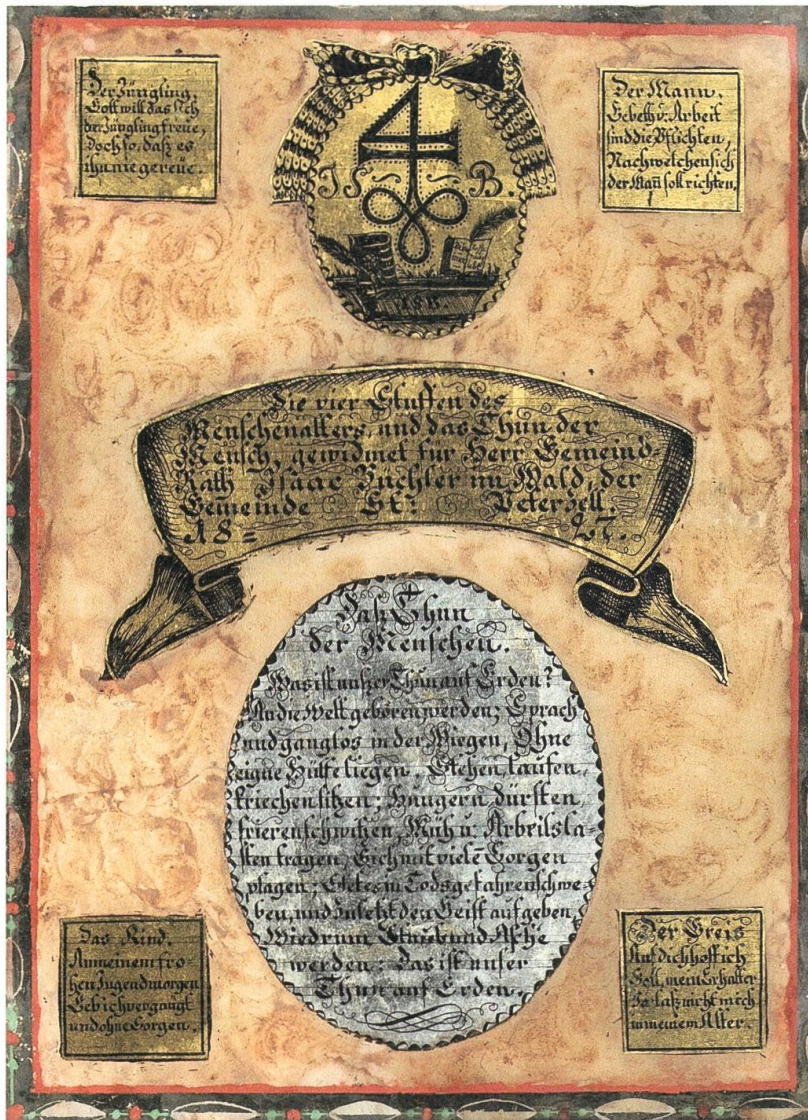 Der Jüngling.
Gott will das sich
der Jüngling freue,
Doch so, daß es
ihn nie gereüe.
Der Mann.
Gebett u: Arbeit
sind die Pflichten,
Nach welchen sich
der Mañ soll richten.
4
IS B.
Die vier Stuffen des
Menschenalters, und das Thun der
Mensch, gewidmet für Herr Gemeind-
Rath Isaac Büchler im Wald, der
Gemeinde St: Peterzell.
18= 27.
Daß Thun
der Menschen.
Was ist unßer Thun auf Erden?
An die Welt geboren werden; Sprach
und ganglos in der Wiegen, Ohne
eigne Hülfe liegen. Stehen, laufen,
kriechen sitzen; Hungern dürsten,
frieren schwitzen, Müh u: Arbeitsla-
sten tragen, Sich mit viele͞ Sorgen
plagen; Stetes in Todsgefahren schwe-
ben, und zuletzt den Geist aufgeben,
Wiedrum Staub und Asche
werden: Das ist unser
Thun auf Erden.
Das Kind.
An meinem fro-
hen Jugendmorgen
Leb ich vergnügt
und ohne Sorgen.
Der Greis
Auf dich hoff ich
Gott, mein Erhalter
So laß nicht mich
in meinem Alter.